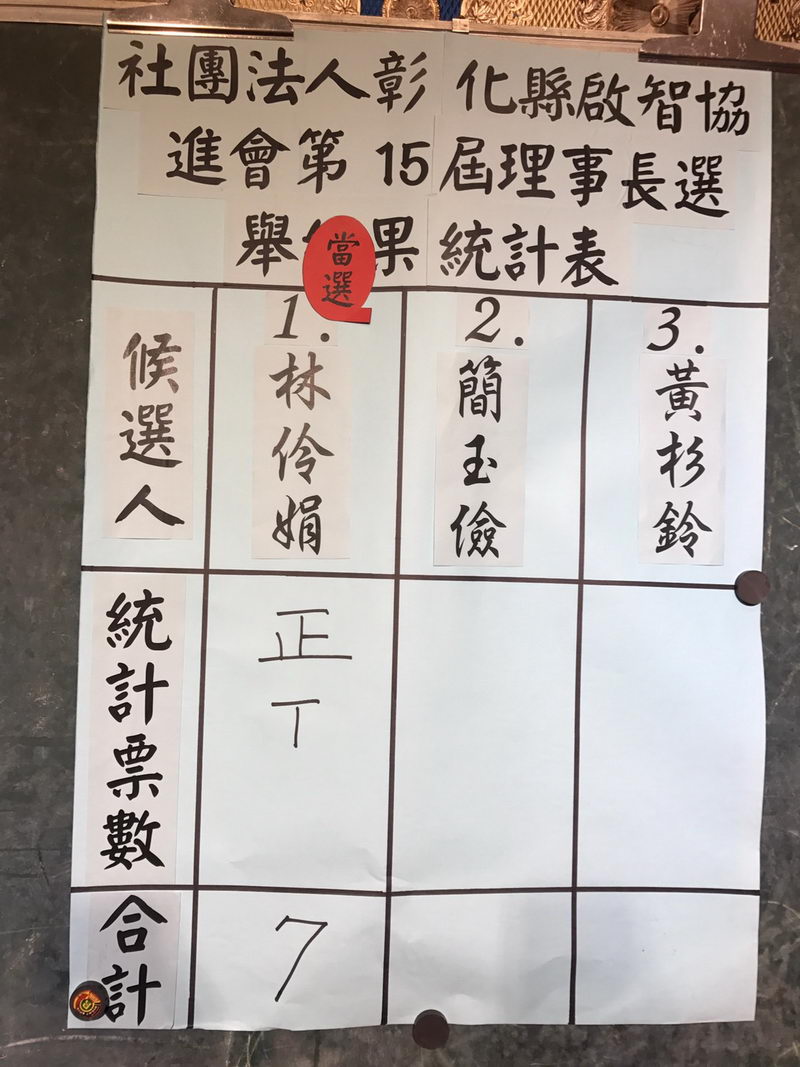 社團法人彰化縣啟智協
進會第15屆理事長選
舉果統計表
當選
候選人
1.林伶娟
2.簡玉儉
3.黃杉鈴
統計票數
正丅
合計
7